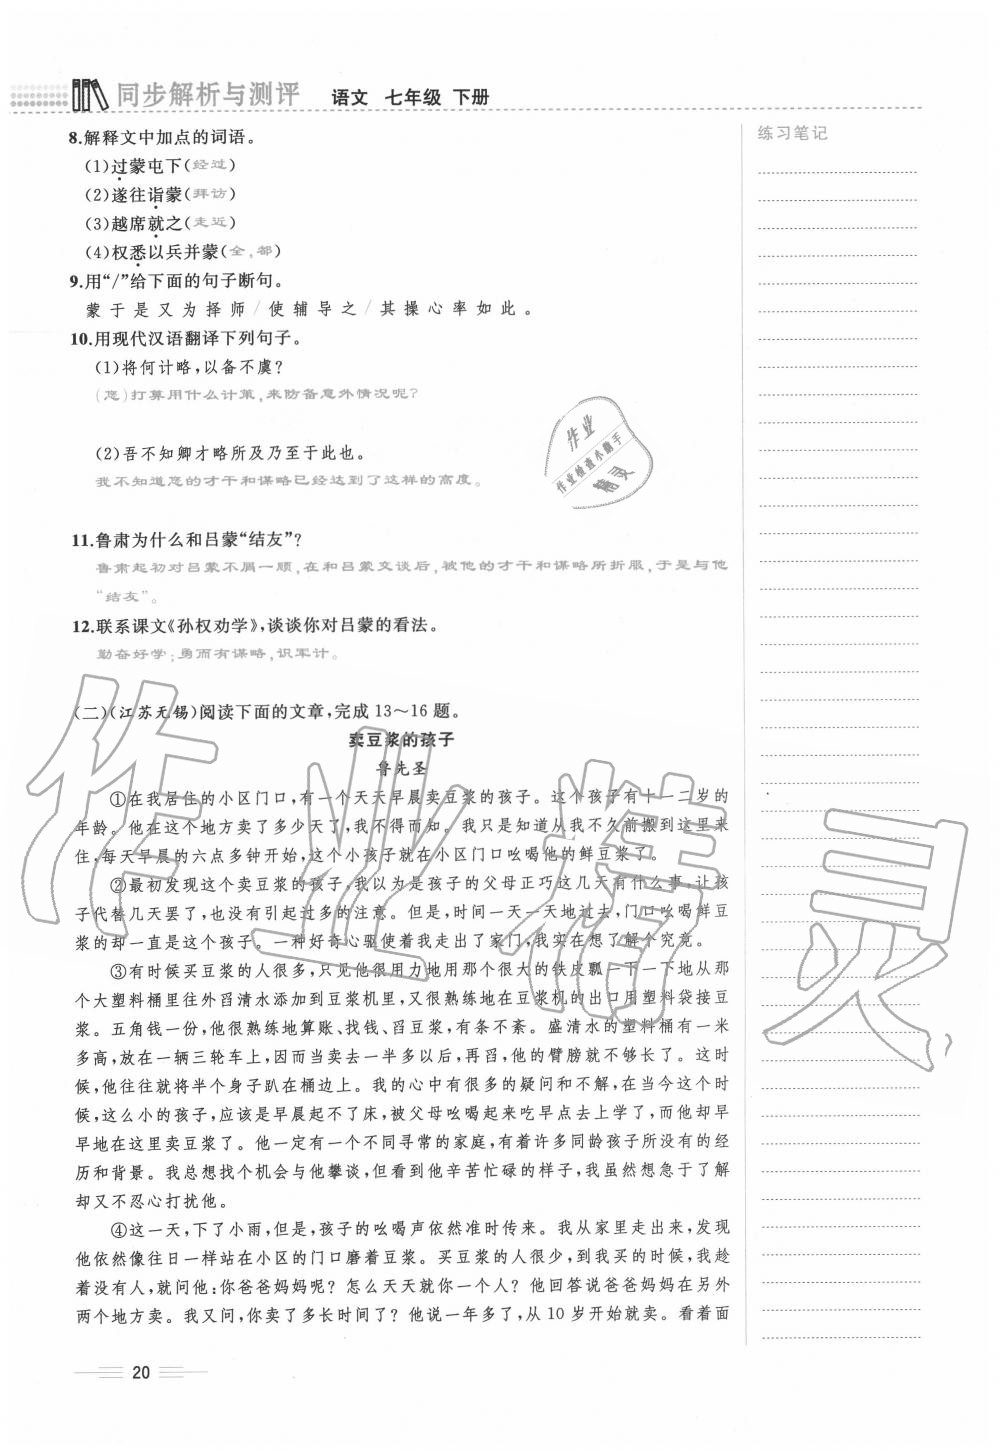 同步解析与测评 语文 七年级 下册
练习笔记
8.解释文中加点的词语。
(1)过蒙屯下(经过)
(2)遂往诣蒙(拜访)
(3)越席就之(走近)
(4)权悉以兵并蒙(全,都)
9.用“/”给下面的句子断句。
蒙于是又为择师/使辅导之/其操心率如此。
10.用现代汉语翻译下列句子。
(1)将何计略,以备不虞?
(您)打算用什么计策,来防备意外情况呢?
(2)吾不知卿才略所及乃至于此也。
我不知道您的才干和谋略已经达到了这样的高度。
11.鲁肃为什么和吕蒙“结友”?
鲁肃起初对吕蒙不屑一顾,在和吕蒙交谈后,被他的才干和谋略所折服,于是与他
“结友”。
12.联系课文《孙权劝学》,谈谈你对吕蒙的看法。
勤奋好学;勇而有谋略,识军计。
(二)(江苏无锡)阅读下面的文章,完成13～16题。
卖豆浆的孩子
鲁先圣
①在我居住的小区门口,有一个天天早晨卖豆浆的孩子。这个孩子有十一二岁的
年龄。他在这个地方卖了多少天了,我不得而知。我只是知道从我不久前搬到这里来
住,每天早晨的六点多钟开始,这个小孩子就在小区门口吆喝他的鲜豆浆了。
②最初发现这个卖豆浆的孩子,我以为是孩子的父母正巧这几天有什么事,让孩
子代替几天罢了,也没有引起过多的注意。但是,时间一天一天地过去,门口吆喝鲜豆
浆的却一直是这个孩子。一种好奇心驱使着我走出了家门,我实在想了解个究竟。
③有时候买豆浆的人很多,只见他很用力地用那个很大的铁皮瓢一下一下地从那
个大塑料桶里往外舀清水添加到豆浆机里,又很熟练地在豆浆机的出口用塑料袋接豆
浆。五角钱一份,他很熟练地算账、找钱、舀豆浆,有条不紊。盛清水的塑料桶有一米
多高,放在一辆三轮车上,因而当清水舀到一多半以后,再舀,他的臂膀就不够长了。这时
候,他往往就将半个身子趴在桶边上。我的心中有很多的疑问和不解,在当今这个时
候,这么小的孩子,应该是早晨起不了床,被父母吆喝起来吃早点去上学了,而他却早
早地在这里卖豆浆了。他一定有一个不同寻常的家庭,有着许多同龄孩子所没有的经
历和背景。我总想找个机会与他攀谈,但看到他辛苦忙碌的样子,我虽然想急于了解
却又不忍心打扰他。
④这一天,下了小雨,但是,孩子的吆喝声依然准时传来。我从家里走出来,发现
他依然像往日一样站在小区的门口磨着豆浆。买豆浆的人很少,到我买的时候,我趁
着没有人,就问他:你爸爸妈妈呢?怎么天天就你一个人?他回答说爸爸妈妈在另外
两个地方卖。我又问,你卖了多长时间了?他说一年多了,从10岁开始就卖。看着面
20
作业
作业检查小助手
精灵
作业精灵